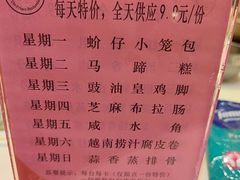 每天特价，全天供应9.9元/份
星期一 蚧仔小笼包
星期二 马蹄糕
星期三 豉油皇鸡脚
星期四 芝麻布拉肠
星期五 咸水角
星期六 越南捞汁腐皮卷
星期日 蒜香蒸排骨